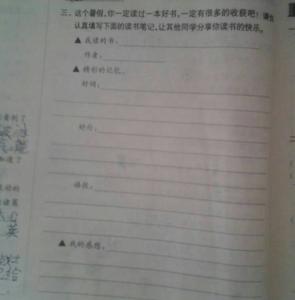 三、这个暑假,你一定读过一本好书,一定有很多的收获吧!请你
认真填写下面的读书笔记,让其他同学分享你读书的快乐。
▲ 我读的书:
作者:
▲ 精彩的记忆:
好词:
好句:
▲ 我的感想: